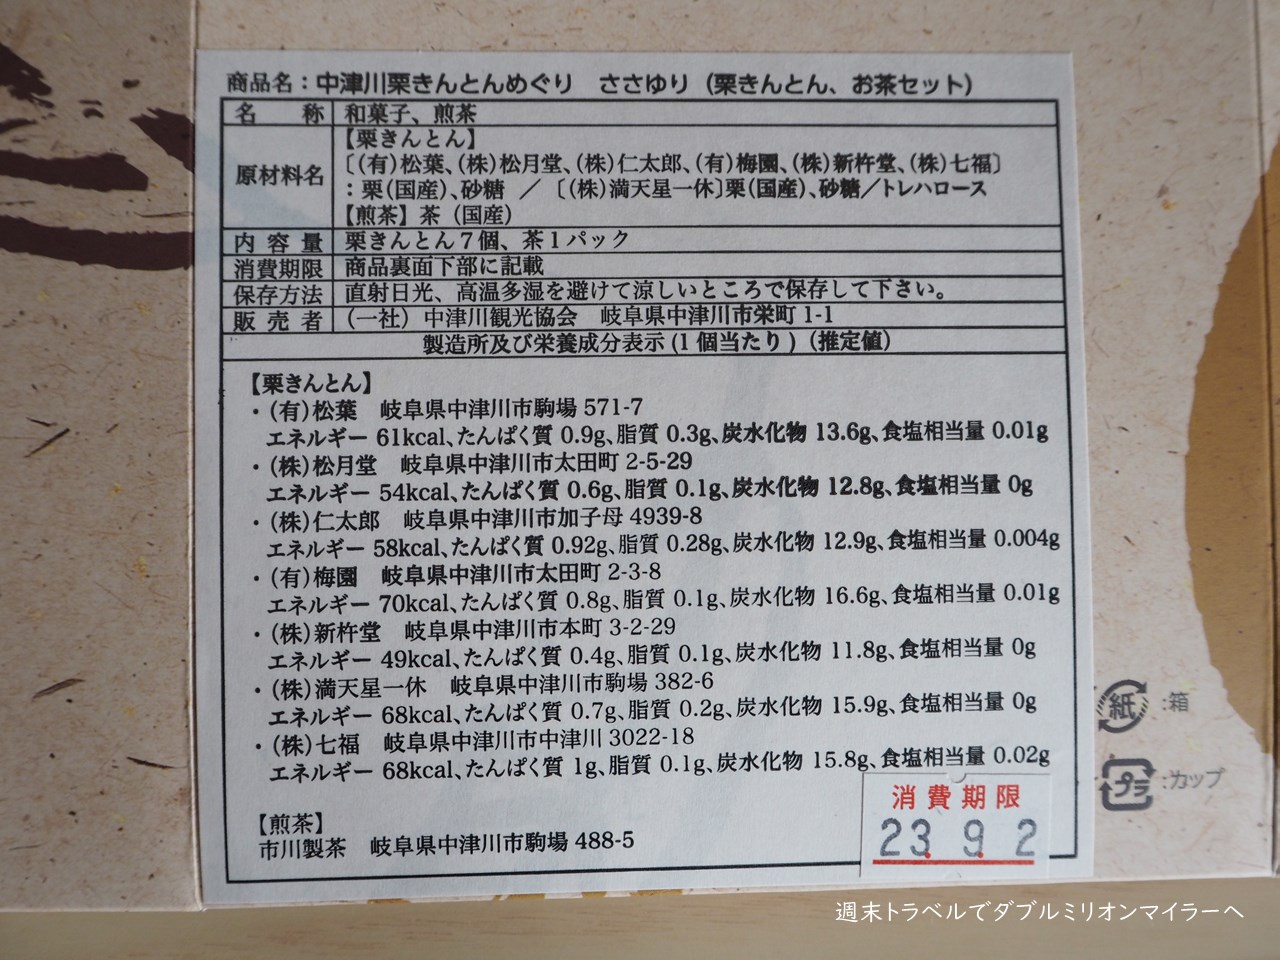 商品名：中津川栗きんとんめぐり　ささゆり（栗きんとん、お茶セット）
名　　称　和菓子、煎茶
原材料名　【栗きんとん】
〔(有)松葉、(株)松月堂、(株)仁太郎、(有)梅園、(株)新杵堂、(株)七福〕
：栗(国産)、砂糖　／　〔(株)満天星一休〕栗(国産)、砂糖／トレハロース
【煎茶】茶（国産）
内 容 量　栗きんとん７個、茶１パック
消費期限　商品裏面下部に記載
保存方法　直射日光、高温多湿を避けて涼しいところで保存して下さい。
販 売 者　(一社)　中津川観光協会　岐阜県中津川市栄町 1-1
製造所及び栄養成分表示 (１個当たり)（推定値）
【栗きんとん】
・(有)松葉　岐阜県中津川市駒場 571-7
エネルギー 61kcal、たんぱく質 0.9g、脂質 0.3g、炭水化物 13.6g、食塩相当量 0.01g
・(株)松月堂　岐阜県中津川市太田町 2-5-29
エネルギー 54kcal、たんぱく質 0.6g、脂質 0.1g、炭水化物 12.8g、食塩相当量 0g
・(株)仁太郎　岐阜県中津川市加子母 4939-8
エネルギー 58kcal、たんぱく質 0.92g、脂質 0.28g、炭水化物 12.9g、食塩相当量 0.004g
・(有)梅園　岐阜県中津川市太田町 2-3-8
エネルギー 70kcal、たんぱく質 0.8g、脂質 0.1g、炭水化物 16.6g、食塩相当量 0.01g
・(株)新杵堂　岐阜県中津川市本町 3-2-29
エネルギー 49kcal、たんぱく質 0.4g、脂質 0.1g、炭水化物 11.8g、食塩相当量 0g
・(株)満天星一休　岐阜県中津川市駒場 382-6
エネルギー 68kcal、たんぱく質 0.7g、脂質 0.2g、炭水化物 15.9g、食塩相当量 0g
・(株)七福　岐阜県中津川市中津川 3022-18
エネルギー 68kcal、たんぱく質 1g、脂質 0.1g、炭水化物 15.8g、食塩相当量 0.02g
【煎茶】
市川製茶　岐阜県中津川市駒場 488-5
消費期限
23. 9. 2
紙：箱
プラ：カップ
週末トラベルでダブルミリオンマイラーへ